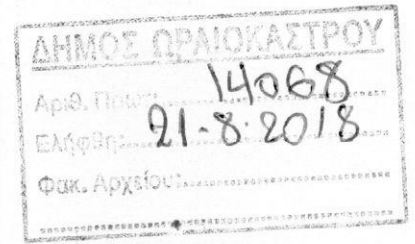 ΔΗΜΟΣ ΩΡΑΙΟΚΑΣΤΡΟΥ
Αριθ. Πρωτ: 14068
Ελήφθη: 21-8-2018
Φακ. Αρχείου: